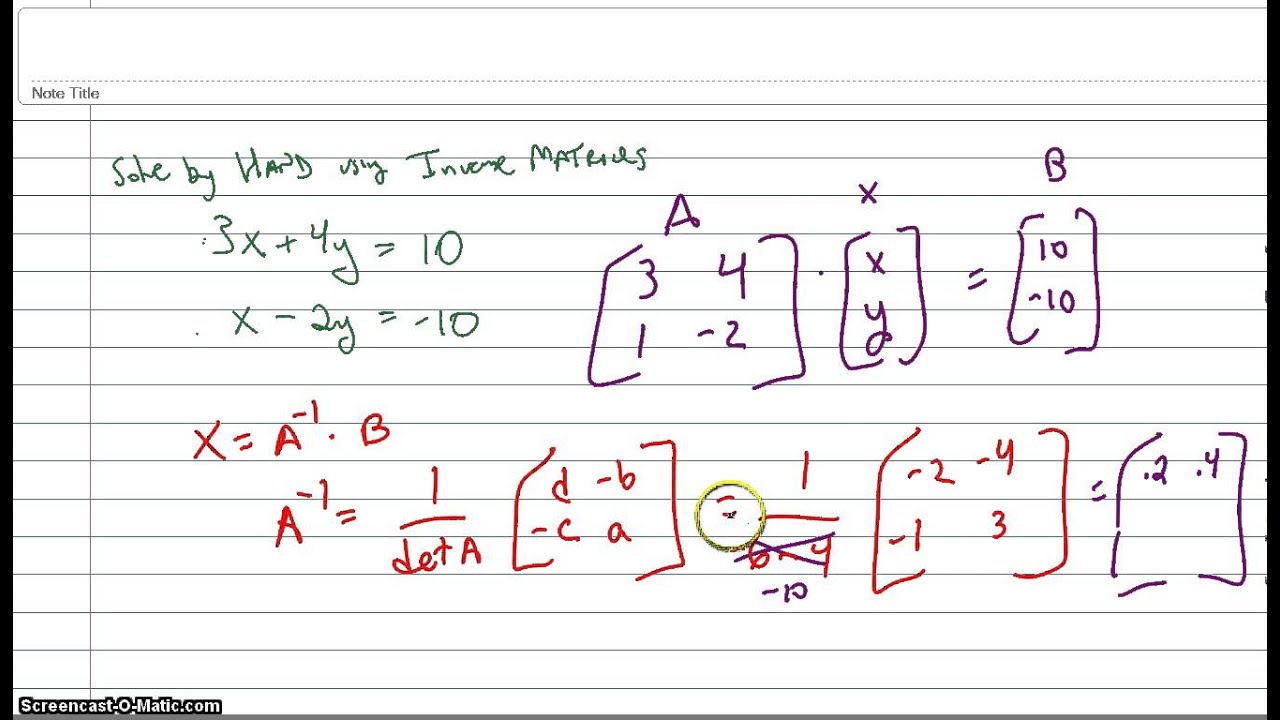 Note Title
Solve by HAND using Inverse MATRICES
3x + 4y = 10
x - 2y = -10
A x B
[3 4
1 -2] · [x
y] = [10
-10]
X = A⁻¹ · B
A⁻¹ = 1/det A [d -b
-c a] = 1/-10 [-2 -4
-1 3] = [.2 .4]
Screencast-O-Matic.com